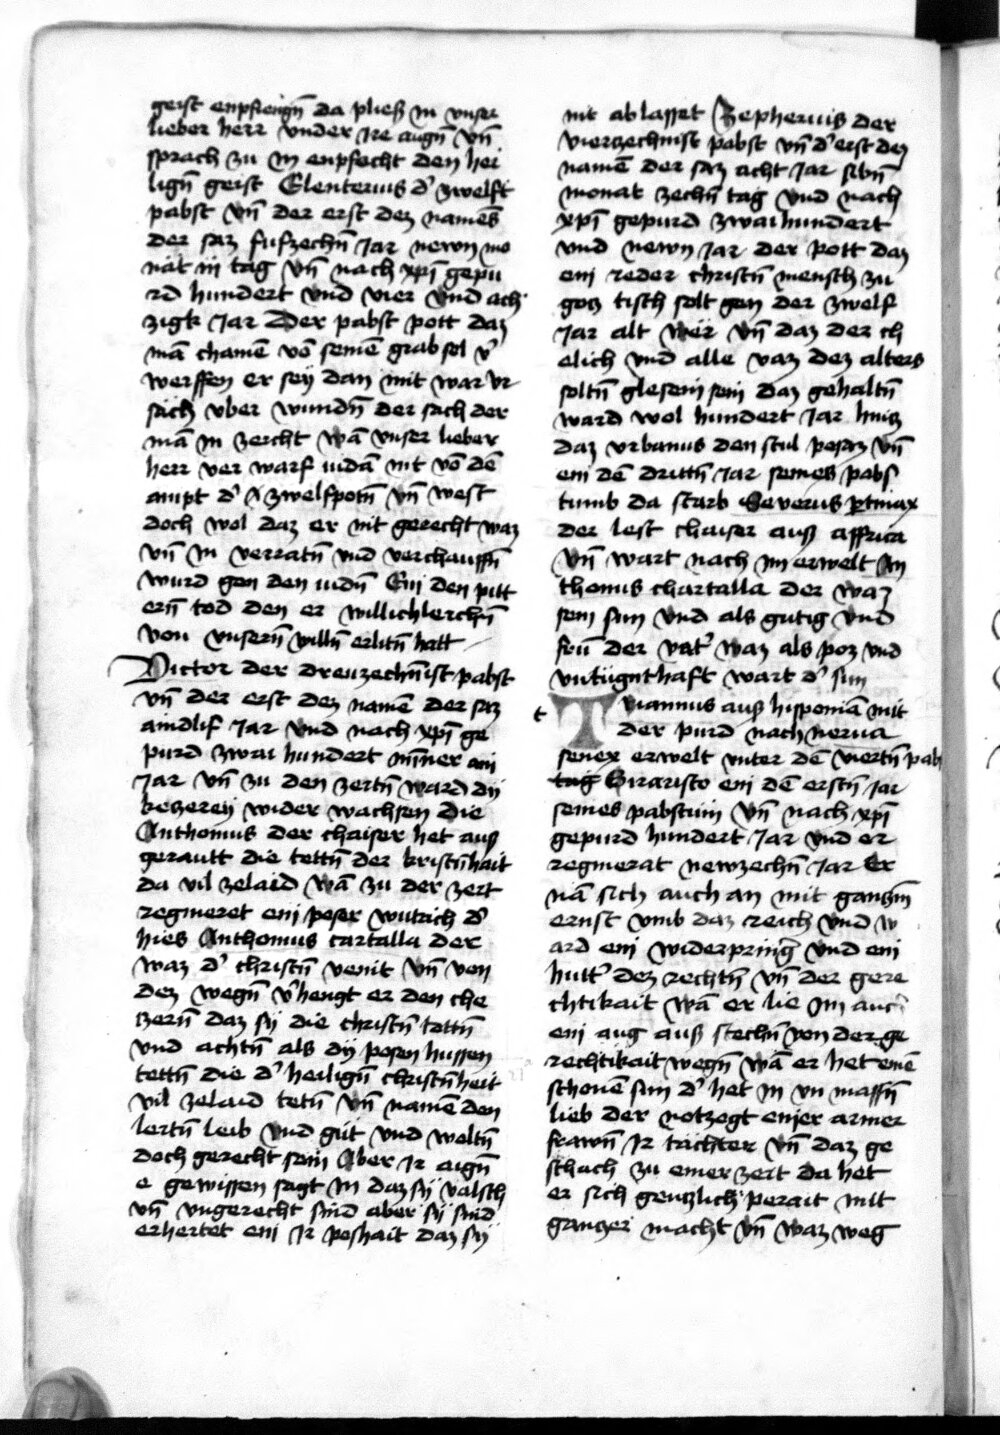 geist enpfiengn̄ da plies in vnser
lieber herr vnder ire augn̄ vn̄
sprach zu in enpfecht den hei
lign̄ geist Elenterius d' zwelft
pabst vn̄ der erst dez namēs
der saz fufzechn̄ Jar newn mo
nat iii tag vn̄ nach xp̄i gepu
rd hundert vnd vier vnd ach
zigk Jar Der pabst pott daz
mā chainē vō seinē grab sol v'
werffen er seÿ dan mit war vr
sach vber wundn̄ der sach der
mā in zeicht wā vnser lieber
herr ver warf iudā nit vō dē
ampt d' zwelfpotn̄ vn̄ west
doch wol daz er nit gerecht waz
vn̄ in verratn̄ vnd verchauffn̄
wurd gen den iudn̄ Ein den pitt
ern̄ tod den er willichlerchn̄
von vnsern̄ willn̄ erlitn̄ hatt
Victor der dreuzechn̄ist pabst
vn̄ der erst dez namē der saz
aindlif Jar vnd nach xp̄i ge
purd zwai hundert min̄er ain
Jar vn̄ zu den zeitn̄ ward dÿ
keczereÿ wider wachsen die
Anthonius der chaiser het aus
gerautt die tettn̄ der kristn̄hait
da vil zelaid wā zu der zeit
regnieret ein poser wutrich d'
hies Anthonius cartalla der
waz d' christn̄ veint vn̄ von
dez wegn̄ v'hengt er den che
zern̄ daz sÿ die christn̄ tottn̄
vnd achtn̄ als dÿ posen hussen
tettn̄ die d' heilign̄ christn̄heit
vil zelaid tetn̄ vn̄ namē den
lertn̄ leib vnd gut vnd woltn̄
doch gerecht sein Aber ir aign̄
e gewissen sagt in daz sÿ valsch
vn̄ vngerecht sind aber sÿ sind
erhertet ein ir poshait daz sÿ
nit ablasset Zepherius der
vierzechnist pabst vn̄ d' erst dez
namē der saz acht Jar sibn̄
monat zechn̄ tag vnd nach
xp̄i gepurd zwaihundert
vnd newn Jar der pott daz
ein ieder christn̄ mensch zu
gotz tisch solt gen der zwelf
Jar alt wer vn̄ daz der ch
elich vnd alle vaz dez alters
soltn̄ glesein sein daz gehaltn̄
ward wol hundert Jar hincz
daz vrbanus den stul pesaz vn̄
ein dē drittn̄ Jar seines pabs
tumb da starb Severus ptinax
der lest chaiser aus affrica
vn̄ wart nach im erwelt An
thonius chartalla der waz
sein sun vnd als gutig vnd
frū der vat' waz als poz vnd
vntugnthaft wart d' sun
t Traianus aus hispaniā mit
der purd nach nerua
senex erwelt vnter dē viertn̄ pab
tag Euaristo ein dē erstn̄ Jar
seines pabstum vn̄ nach xp̄i
gepurd hundert Jar vnd er
regnierat newzechn̄ Jar Er
nā sich auch an mit ganczm
ernst vmb daz reich vnd w
ard ein widerpring' vnd ein
hutt' dez rechtn̄ vn̄ der gere
chtikait wā er lie im auch
ein aug aus stechn̄ von der ge
rechtikait wegn̄ wā er het einē
schonē sun d' het in vn massn̄
lieb der notzogt einer armer
frawn̄ ir tachter vn̄ daz ge
schach zu einer zeit da het
er sich genczlich perait mit
ganczer macht vn̄ waz weg